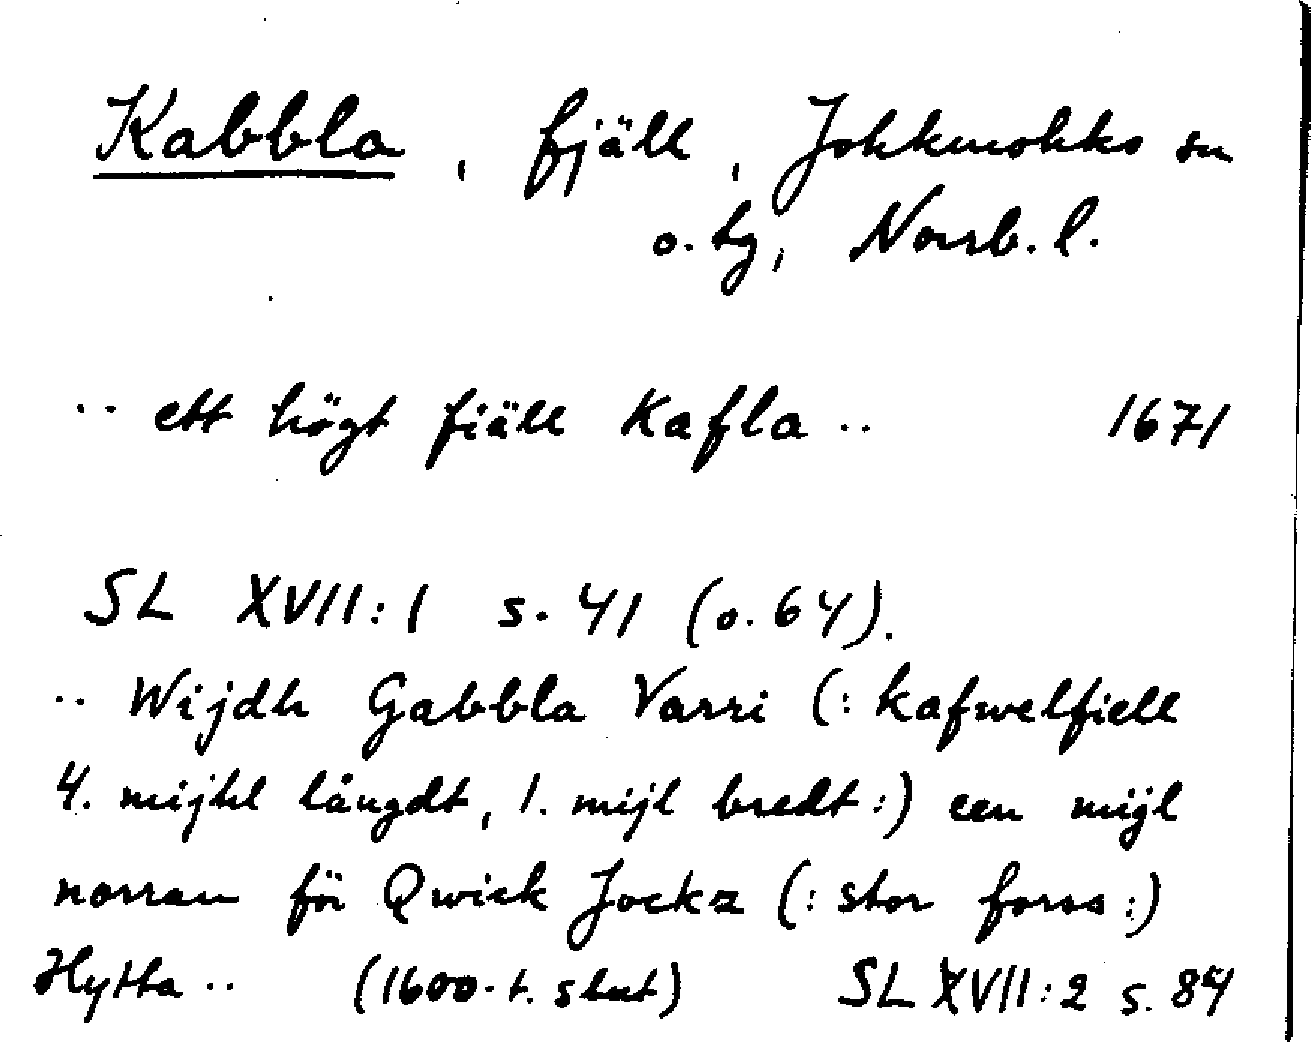 Kabbla, fjäll, Johkmohko sn
o. tg, Norrb. l.
·· ett högt fiäll Kafla ·· 1671
SL XVII:1 s. 41 (o. 64).
·· Wijdh Gabbla Varri (: kafwelfiell
4. mijhl långdt, 1. mijl bredt :) een mijl
norran för Qwick Jockz (: stor forss :)
Hytta ·· (1600-t. slut) SL XVII:2 s. 84